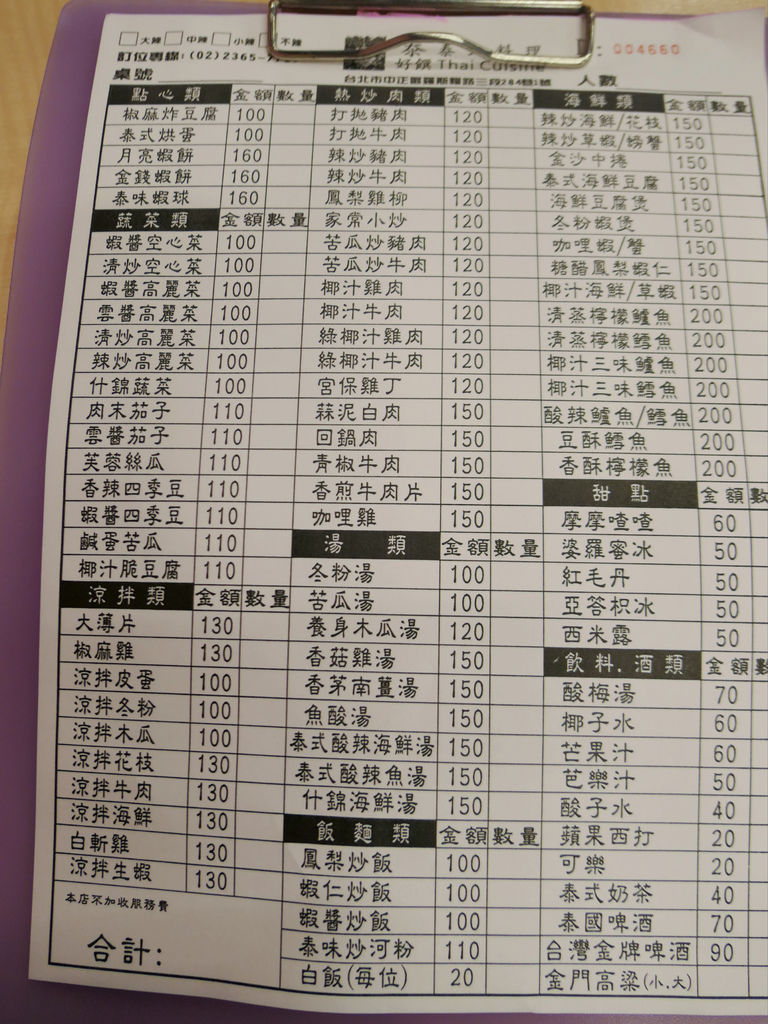 大辣 中辣 小辣 不辣
訂位專線:(02)2365-
泰 料理
好饌 Thai Cuisine
004660
台北市中正區羅斯福路三段284巷1號
桌號
人數
點心類 金額 數量
椒麻炸豆腐 100
泰式烘蛋 100
月亮蝦餅 160
金錢蝦餅 160
泰味蝦球 160
蔬菜類 金額 數量
蝦醬空心菜 100
清炒空心菜 100
蝦醬高麗菜 100
雲醬高麗菜 100
清炒高麗菜 100
辣炒高麗菜 100
什錦蔬菜 100
肉末茄子 110
雲醬茄子 110
芙蓉絲瓜 110
香辣四季豆 110
蝦醬四季豆 110
鹹蛋苦瓜 110
椰汁脆豆腐 110
涼拌類 金額 數量
大薄片 130
椒麻雞 130
涼拌皮蛋 100
涼拌冬粉 100
涼拌木瓜 100
涼拌花枝 130
涼拌牛肉 130
涼拌海鮮 130
白斬雞 130
涼拌生蝦 130
本店不加收服務費
合計:
熱炒肉類 金額 數量
打拋豬肉 120
打拋牛肉 120
辣炒豬肉 120
辣炒牛肉 120
鳳梨雞柳 120
家常小炒 120
苦瓜炒豬肉 120
苦瓜炒牛肉 120
椰汁雞肉 120
椰汁牛肉 120
綠椰汁雞肉 120
綠椰汁牛肉 120
宮保雞丁 120
蒜泥白肉 150
回鍋肉 150
青椒牛肉 150
香煎牛肉片 150
咖哩雞 150
湯類 金額 數量
冬粉湯 100
苦瓜湯 100
養身木瓜湯 120
香菇雞湯 150
香茅南薑湯 150
魚酸湯 150
泰式酸辣海鮮湯 150
泰式酸辣魚湯 150
什錦海鮮湯 150
飯麵類 金額 數量
鳳梨炒飯 100
蝦仁炒飯 100
蝦醬炒飯 100
泰味炒河粉 110
白飯(每位) 20
海鮮類 金額 數量
辣炒海鮮/花枝 150
辣炒草蝦/螃蟹 150
金沙中捲 150
泰式海鮮豆腐 150
海鮮豆腐煲 150
冬粉蝦煲 150
咖哩蝦/蟹 150
糖醋鳳梨蝦仁 150
椰汁海鮮/草蝦 150
清蒸檸檬鱸魚 200
清蒸檸檬鱈魚 200
椰汁三味鱸魚 200
椰汁三味鱈魚 200
酸辣鱸魚/鱈魚 200
豆酥鱈魚 200
香酥檸檬魚 200
甜點 金額 數
摩摩喳喳 60
婆羅蜜冰 50
紅毛丹 50
亞答枳冰 50
西米露 50
飲料.酒類 金額 數
酸梅湯 70
椰子水 60
芒果汁 60
芭樂汁 50
酸子水 40
蘋果西打 20
可樂 20
泰式奶茶 40
泰國啤酒 70
台灣金牌啤酒 90
金門高粱(小.大)